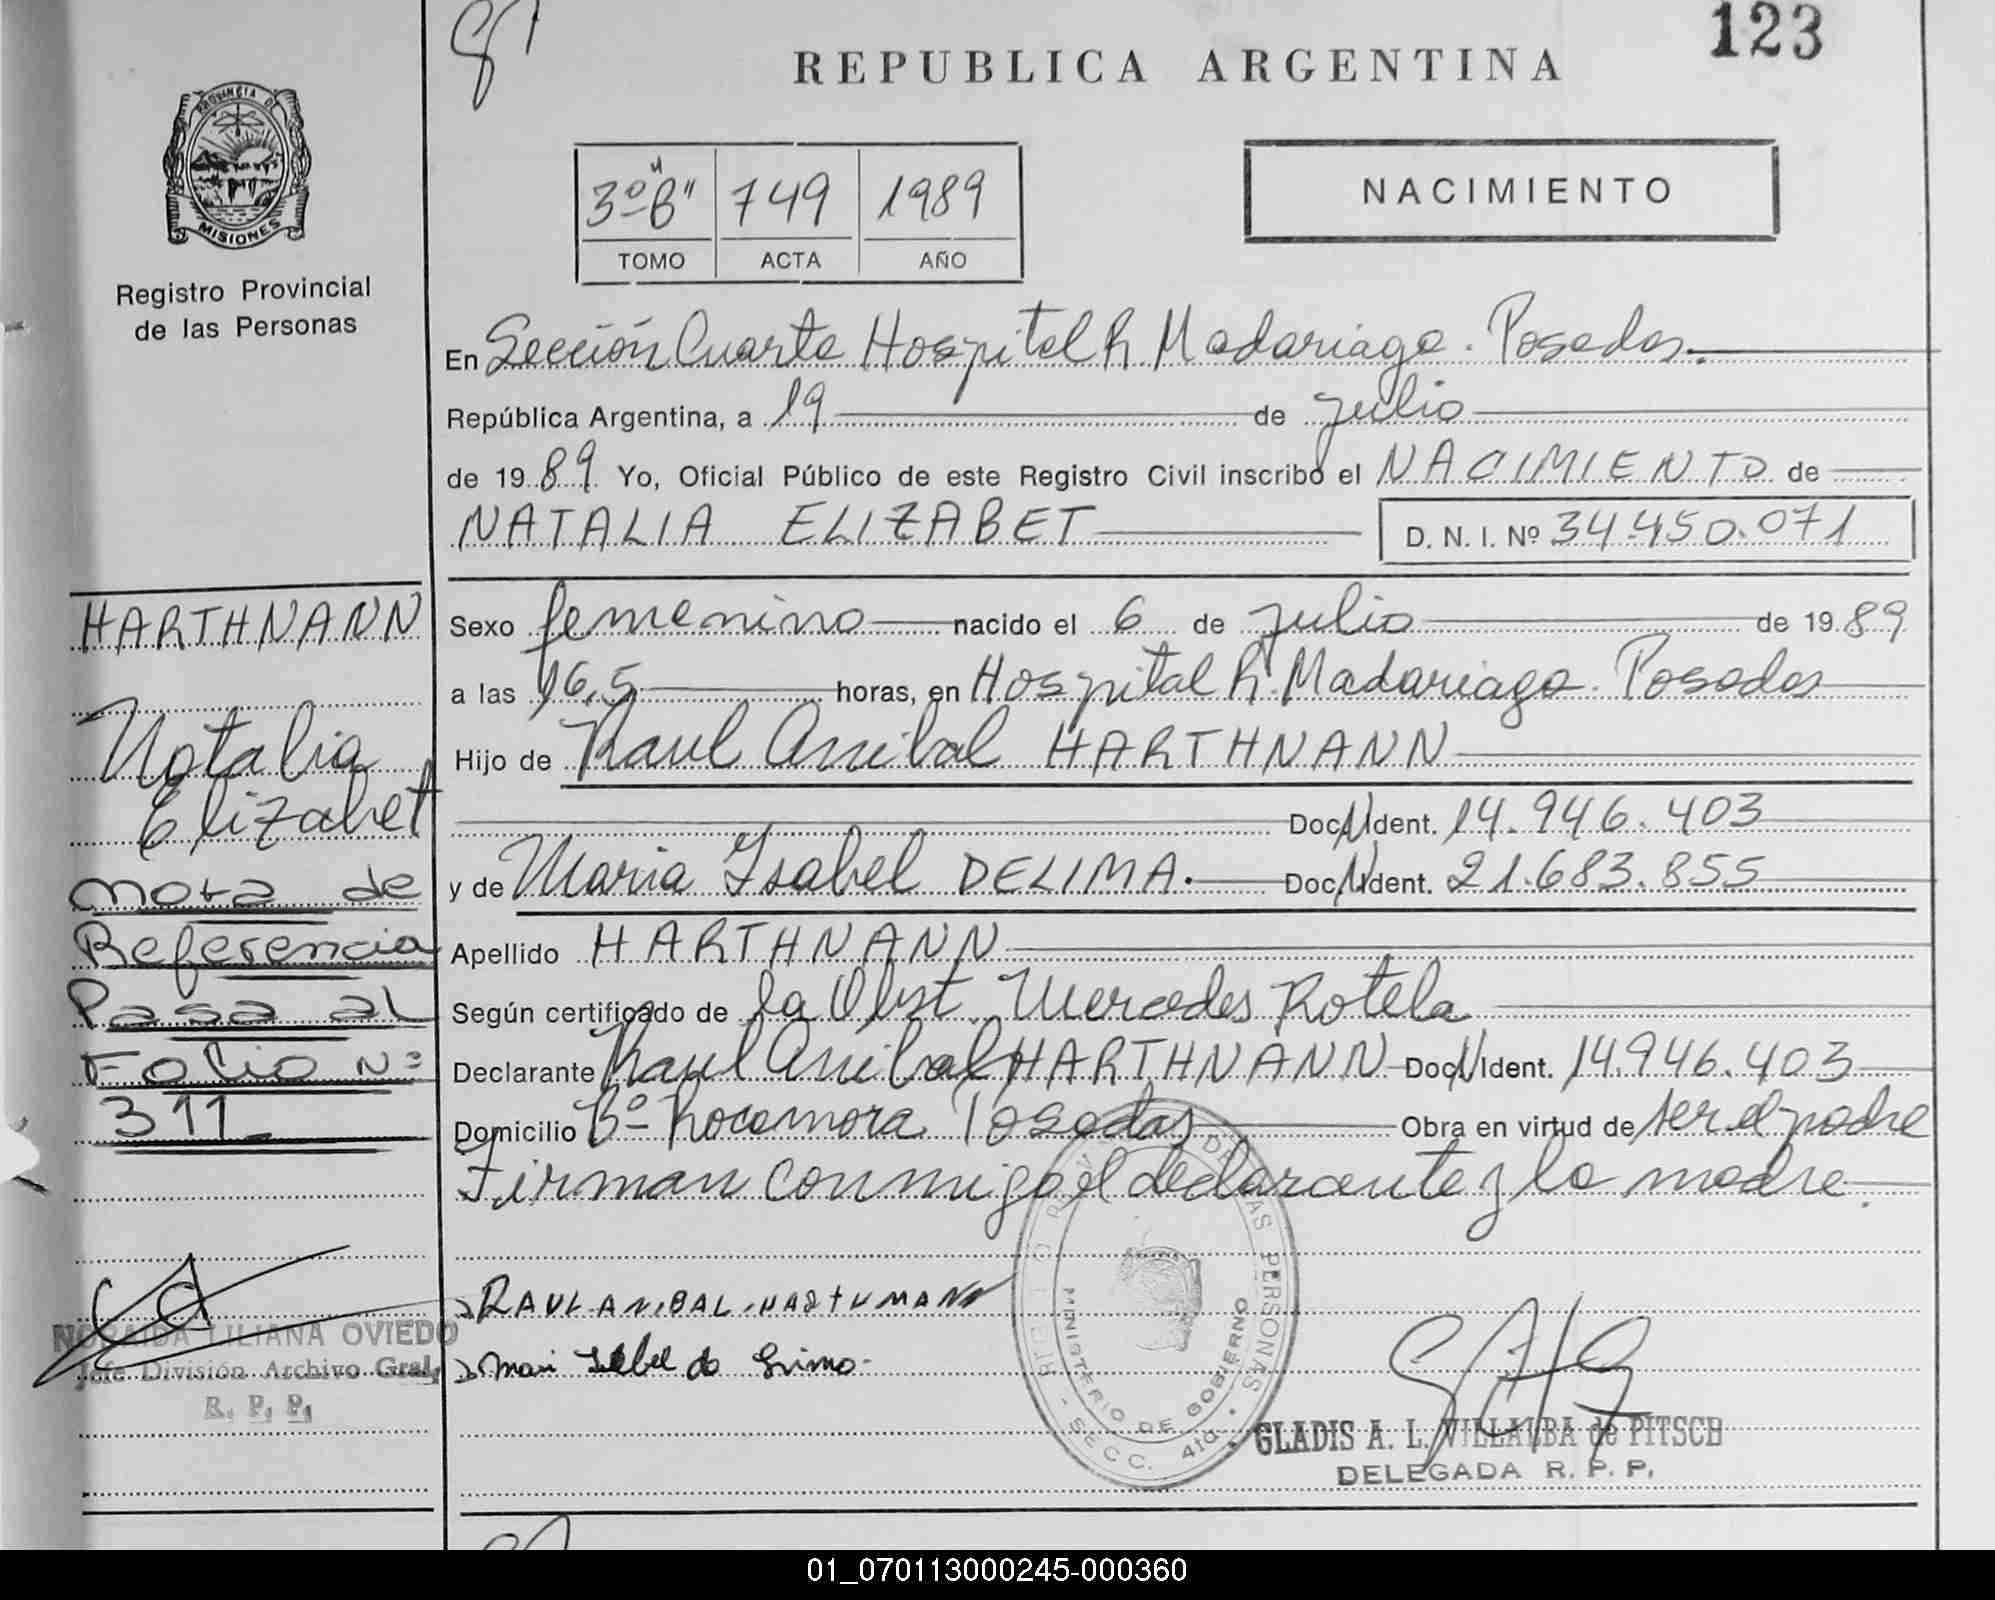 123
REPUBLICA ARGENTINA
PROVINCIA DE
MISIONES
Registro Provincial
de las Personas
3º "B" 749 1989
TOMO ACTA AÑO
NACIMIENTO
En Sección Cuarta Hospital R. Madariaga. Posadas.
República Argentina, a 19 de julio
de 1989 Yo, Oficial Público de este Registro Civil inscribo el NACIMIENTO de
NATALIA ELIZABET D. N. I. Nº 34.450.071
Sexo femenino nacido el 6 de julio de 1989
a las 16,5 horas, en Hospital R. Madariaga. Posadas
Hijo de Raul Anibal HARTHNANN
Doc. Ident. 14.946.403
y de Maria Isabel DELIMA. Doc. Ident. 21.683.855
Apellido HARTHNANN
Según certificado de la Obst. Mercedes Rotela
Declarante Raul Anibal HARTHNANN Doc. Ident. 14.946.403
Domicilio Bº Rocamora Posadas Obra en virtud de ser el padre
Firman conmigo el declarante y la madre.
HARTHNANN
Natalia
Elizabet
Nota de
Referencia
Pasa al
Folio Nº
311
NORAIDA LILIANA OVIEDO
Jefe División Archivo Gral.
R. P. P.
RAUL ANIBAL HARTHMANN
DE LAS PERSONAS
MINISTERIO DE GOBIERNO
SECC. 4ta.
GLADIS A. L. VILLALBA de PITSCH
DELEGADA R. P. P.
01_070113000245-000360